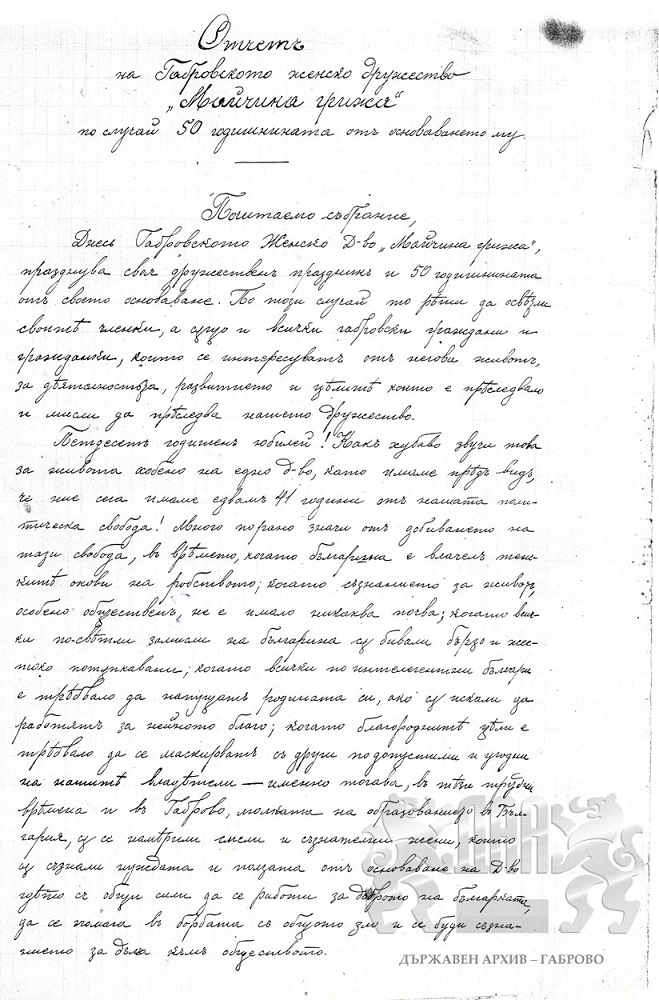 Отчетъ
на Габровското женско дружество
„Майчина грижа“
по случай 50 годишнината отъ основаването му
Почитаемо събрание,
Днесь Габровското Женско Д-во „Майчина грижа“,
празднува своя дружественъ праздникъ и 50 годишнината
отъ своето основаване. По този случай то рѣши да освѣтли
своитѣ членки, а също и всички габровски граждани и
гражданки, които се интересуватъ отъ негова животъ,
за дѣятелностьта, развитието и цѣлитѣ които е прѣследвало
и мисли да прѣследва нашето дружество.
Петдесетъ годишенъ юбилей! Какъ хубаво звучи това
за живота особено на едно Д-во, като имаме прѣдъ видъ,
че ние сега имаме едвамъ 41 години отъ нашата поли-
тическа свобода! Много порано значи отъ добиването на
тази свобода, въ врѣмето, когато българина е влачелъ теж-
китѣ окови на робството; когато съзнанието за животъ,
особено общественъ, не е имало никаква почва; когато всич-
ки по-свѣтли замисли на българина сѫ бивали бързо и жес-
токо потупквани; когато всички по интелегентни българи
е трѣбвало да напущатъ родината си, ако сѫ искали да
работятъ за нейното благо; когато благороднитѣ цѣли е
трѣбвало да се маскиратъ съ други по допустими и угодни
на нашитѣ владѣтели — именно тогава, въ тѣзи трудни
врѣмена и въ Габрово, люлката на образованието въ Бъл-
гария, сѫ се намѣрили смѣли и съзнателни жени, които
сѫ съзнали нуждата и ползата отъ основаване на Д-во
гдѣто съ общи сили да се работи за доброто на българката,
да се помага въ борбата съ общото зло и се буди съзна-
нието за дълга къмъ обществото.
ДЪРЖАВЕН АРХИВ – ГАБРОВО